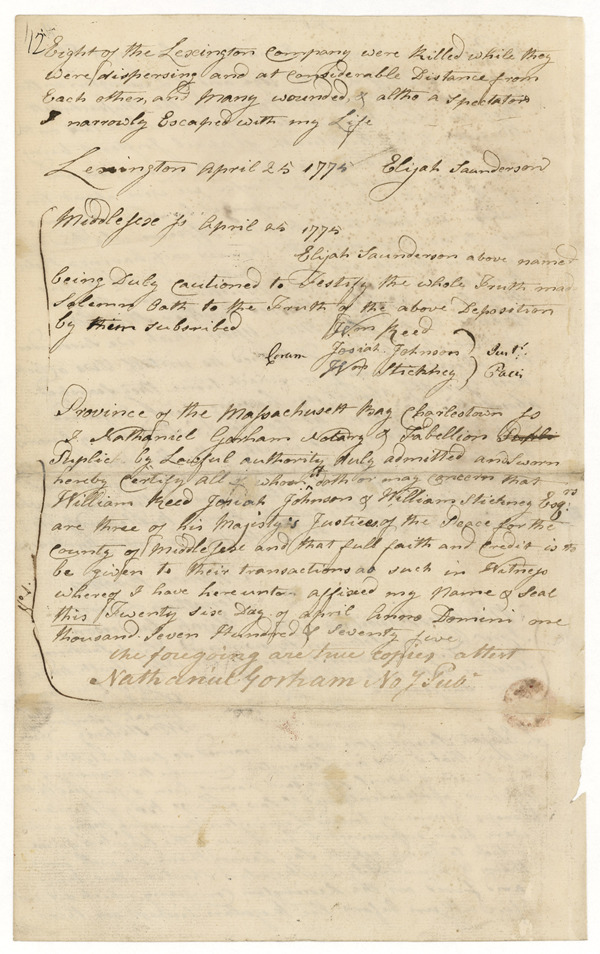 12 Eight of the Lexington Company were Killed while they
were dispersing and at considerable Distance from
Each other, and Many wounded, & altho a Spectator
I narrowly Escaped with my Life
Lexington April 25 1775 Elijah Saunderson
Middlesex ss April 25 1775
Elijah Saunderson above named
being Duly cautioned to Testify the whole Truth made
Solemn Oath to the Truth of the above Deposition
by them subscribed Wm Reed
Coram Josiah Johnson Just.
Wm Stickney Pacis
Province of the Massachusett Bay Charlestown ss
I Nathaniel Gorham Notary & Tabellion Public
Publie by Lawful authority duly admitted and Sworn
hereby Certify all to whom it doth or may concern that
William Reed Josiah Johnson & William Stickney Esqrs
are three of his Majesty's Justices of the Peace for the
county of Middlesex and that full faith and Credit is to
be given to their transactions as such in Witness
whereof I have hereunto affixed my Name & Seal
this Twenty six Day of April Anno Domini one
thousand Seven Hundred & Seventy five
the foregoing are true copies attest
Nathaniel Gorham Noy Pub.